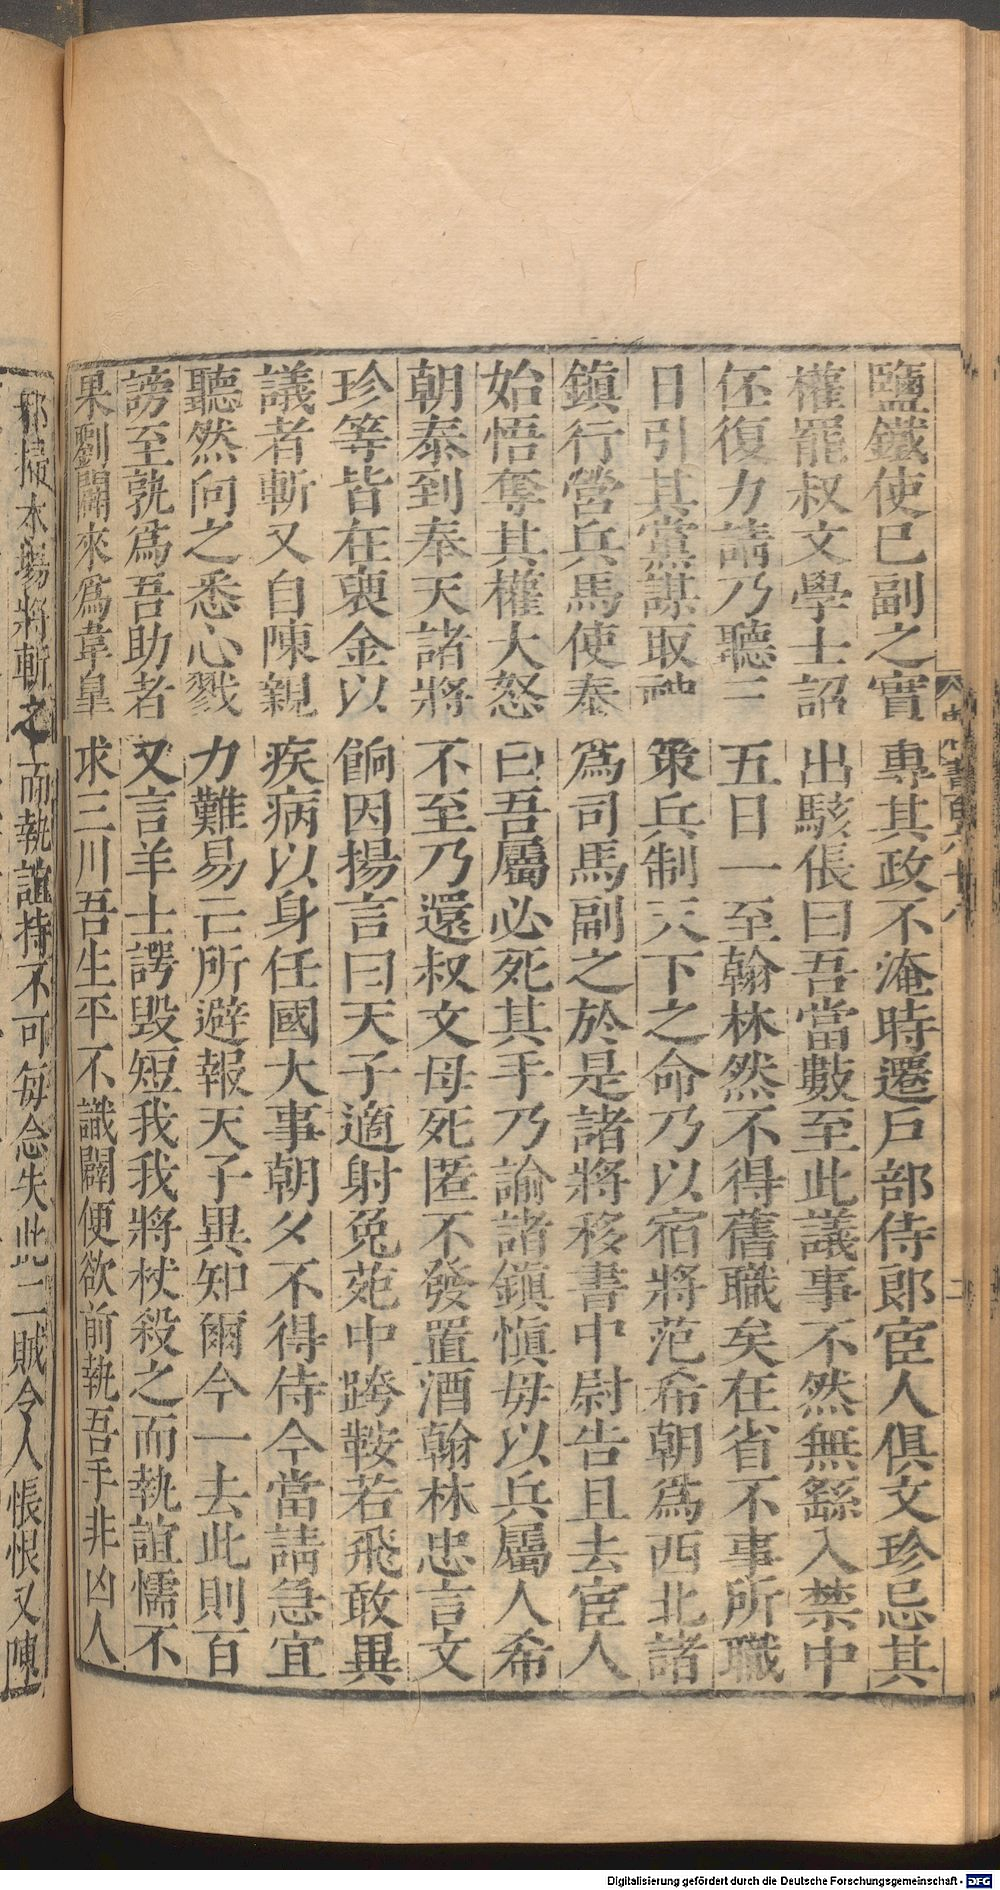 鹽鐵使已副之實專其政不淹時遷戶部侍郎宦人俱文珍忌其
權罷叔文學士詔出駭悵曰吾當數至此議事不然無繇入禁中
伾復力請乃聽三五日一至翰林然不得舊職矣在省不事所職
日引其黨謀取神策兵制天下之命乃以宿將范希朝爲西北諸
鎮行營兵馬使泰爲司馬副之於是諸將移書中尉告且去宦人
始悟奪其權大怒曰吾屬必死其手乃諭諸鎮愼毋以兵屬人希
朝泰到奉天諸將不至乃還叔文母死匿不發置酒翰林忠言文
珍等皆在裒金以餉因揚言曰天子適射兔苑中跨鞍若飛敢異
議者斬又自陳親疾病以身任國大事朝夕不得侍今當請急宜
聽然向之悉心戮力難易亡所避報天子異知爾今一去此則百
謗至孰爲吾助者又言羊士諤毀短我我將杖殺之而執誼懦不
果劉闢來爲韋皇求三川吾生平不識闢便欲前執吾手非凶人
邪掃木場將斬之而執誼持不可每念失此二賊令人悵恨又陳
Digitalisierung gefördert durch die Deutsche Forschungsgemeinschaft - DFG